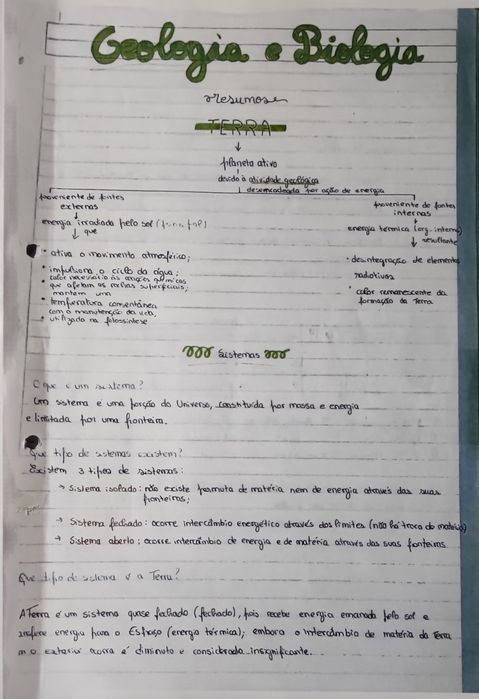 Geologia e Biologia
resumos
TERRA
planeta ativo
devido à atividade geológica
desencadeada por ação de energia
proveniente de fontes
externas
energia irradiada pelo sol
que
• ativa o movimento atmosférico;
• impulsiona o ciclo da água;
• calor necessário às reações químicas
que afetam as rochas superficiais;
• mantém uma
temperatura
com a manutenção da vida,
• utilizada na fotossíntese
proveniente de fontes
internas
energia térmica (org. interna)
resultante
• desintegração de elementos
radiotivos
• calor remanescente da
formação da Terra
Sistemas
O que é um sistema?
Um sistema é uma porção do Universo, constituída por massa e energia
e limitada por uma fronteira.
Que tipo de sistemas existem?
Existem 3 tipos de sistemas:
→ Sistema isolado: não existe permuta de matéria nem de energia através das suas
fronteiras;
→ Sistema fechado: ocorre intercâmbio energético através dos limites (não há troca de matéria)
→ Sistema aberto: ocorre intercâmbio de energia e de matéria através das suas fronteiras.
Que tipo de sistema é a Terra?
A Terra é um sistema quase fechado (fechado), pois recebe energia emanada pelo sol e
energia para o Espaço (energia térmica); embora o intercâmbio de matéria da Terra
o exterior ocorra é diminuto e considerada insignificante.